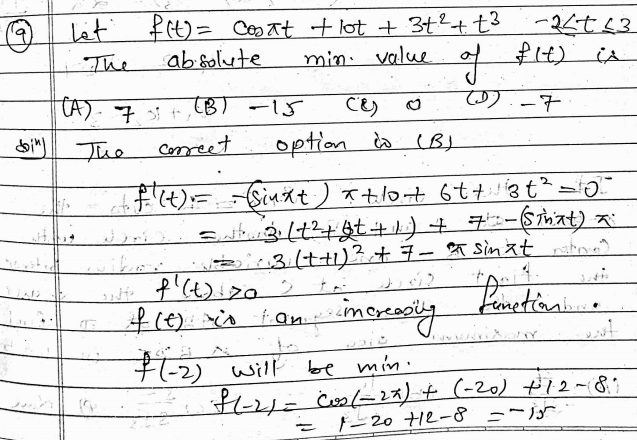 (19) Let f(t) = cosπt + 10t + 3t² + t³ -2≤t≤3
The absolute min. value of f(t) is
(A) 7 (B) -15 (C) 0 (D) -7
Soln) The correct option is (B)
f'(t) = -(sinπt) π + 10 + 6t + 3t² = 0
= 3(t² + 2t + 1) + 7 - (sinπt) π
= 3(t+1)² + 7 - π sinπt
f'(t) > 0
f(t) is an increasing function.
f(-2) will be min.
f(-2) = cos(-2π) + (-20) + 12 - 8
= 1 - 20 + 12 - 8 = -15